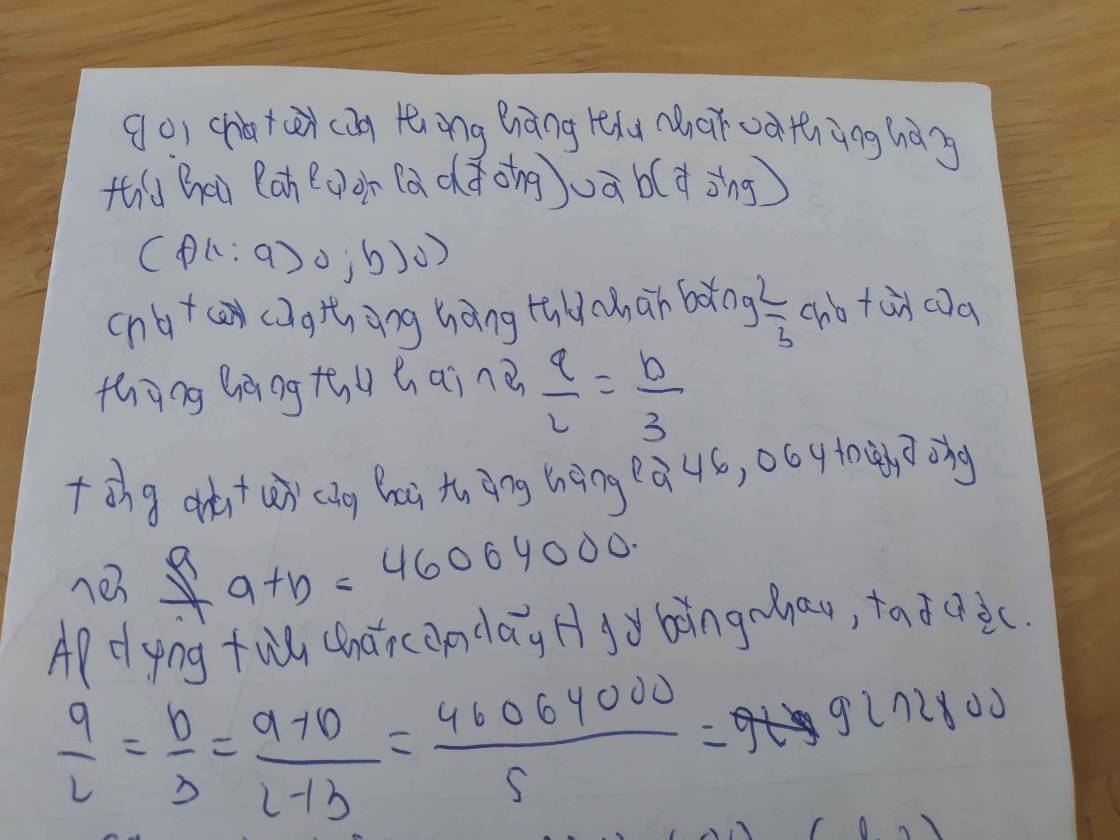 Gọi giá tiền của thùng hàng thứ nhất và thùng hàng
thứ hai lần lượt là a(đồng) và b(đồng)
(ĐK: a>0; b>0)
giá tiền của thùng hàng thứ nhất bằng 2/3 giá tiền của
thùng hàng thứ hai nên a/2 = b/3
tổng giá tiền của hai thùng hàng là 46,064 triệu đồng
nên a+b = 46064000.
Áp dụng tính chất của dãy tỉ số bằng nhau, ta được.
a/2 = b/3 = a+b/2+3 = 46064000/5 = 9212800